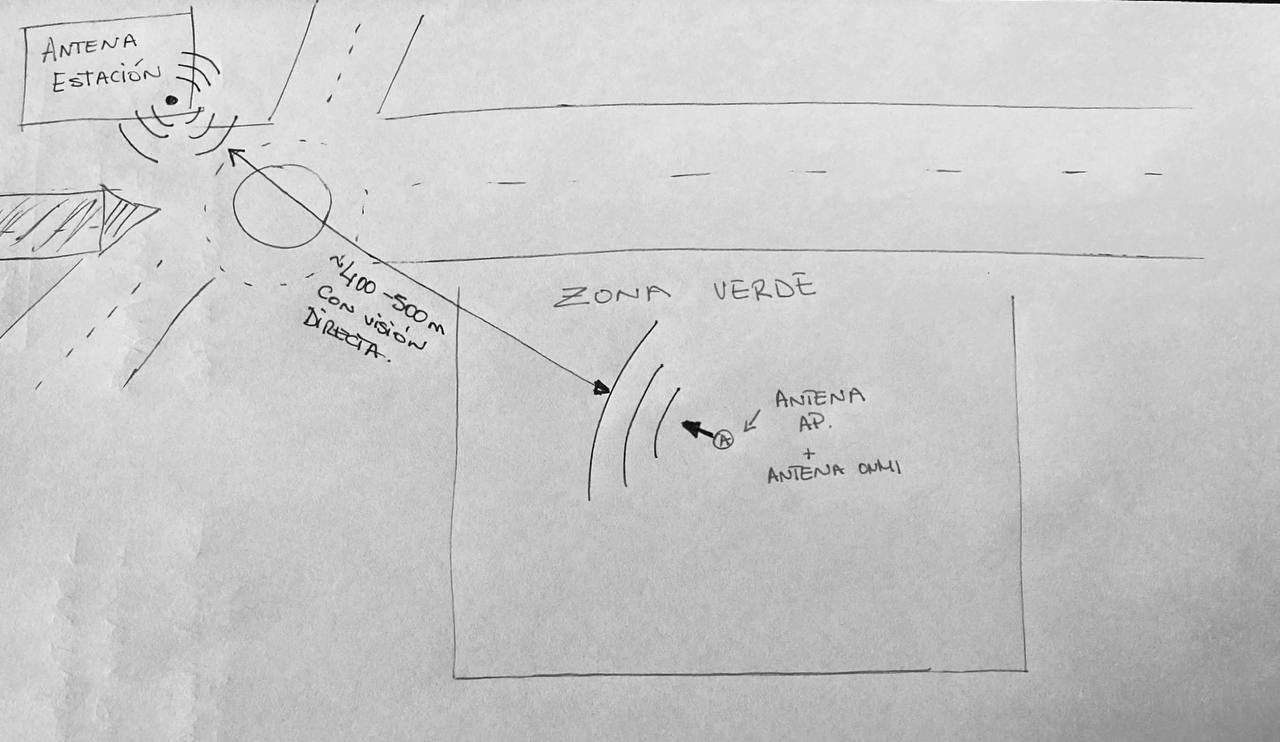 ANTENA
ESTACIÓN
~400-500m
CON VISIÓN
DIRECTA.
ZONA VERDE
A
ANTENA
AP.
+
ANTENA ONMI